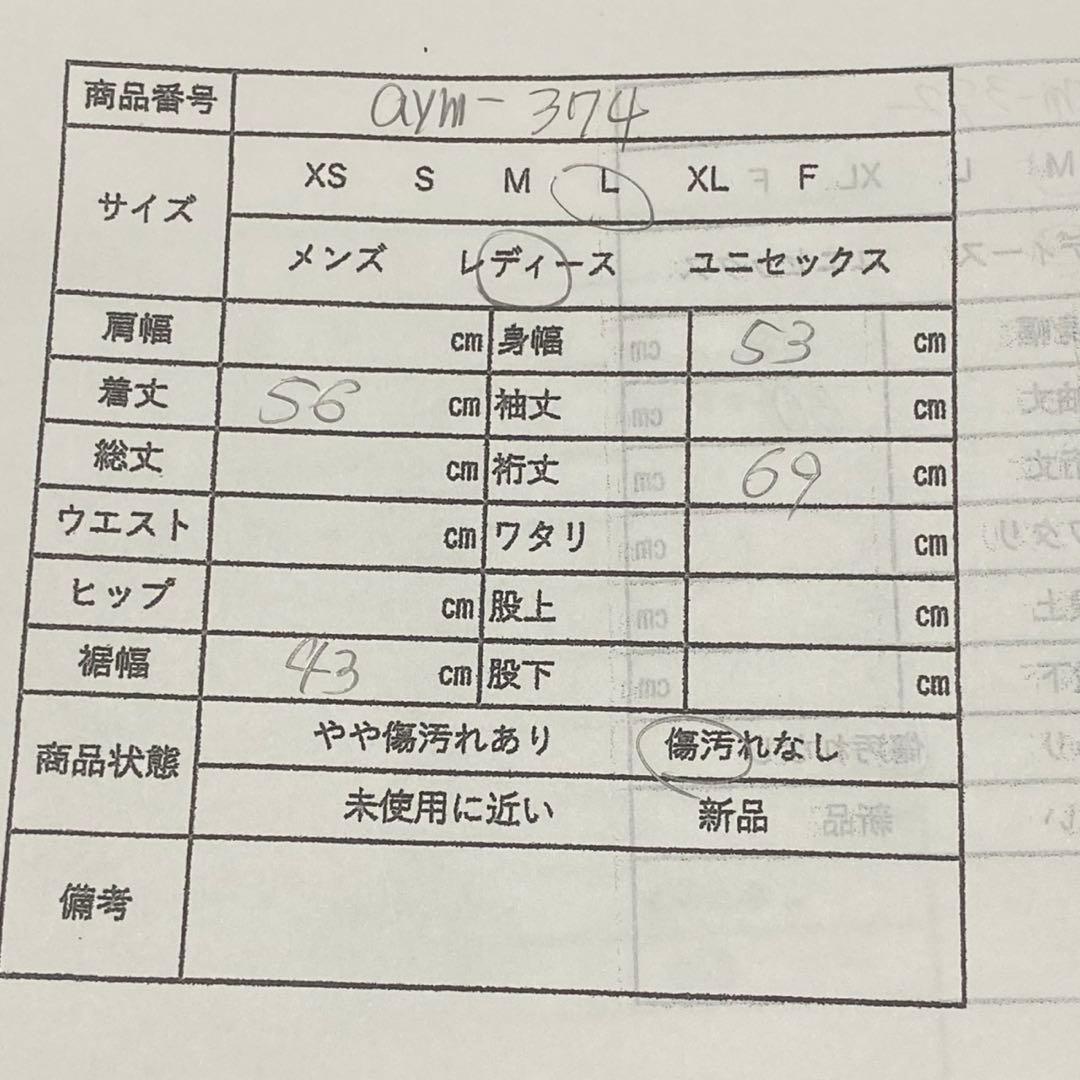 商品番号 aym-374
サイズ XS S M L XL F
メンズ レディース ユニセックス
肩幅 cm 身幅 53 cm
着丈 56 cm 袖丈 cm
総丈 cm 裄丈 69 cm
ウエスト cm ワタリ cm
ヒップ cm 股上 cm
裾幅 43 cm 股下 cm
商品状態 やや傷汚れあり 傷汚れなし
未使用に近い 新品
備考